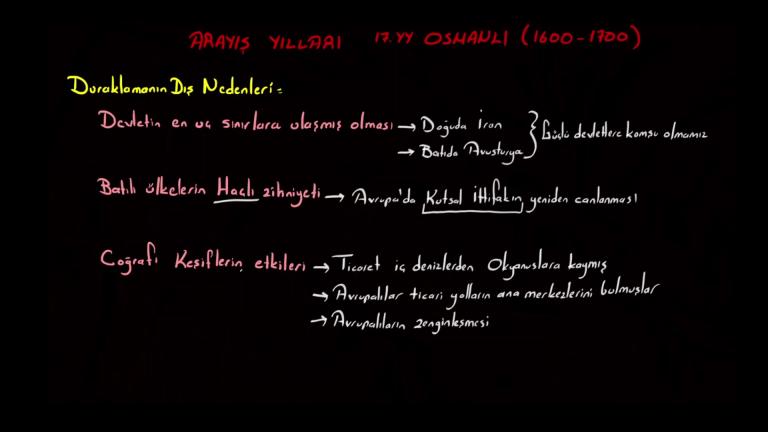 ARAYIŞ YILLARI 17.YY OSMANLI (1600-1700)
Duraklamanın Dış Nedenleri:
Devletin en uç sınırlara ulaşmış olması → Doğuda İran
→ Batıda Avusturya } Güçlü devletlere komşu olmamız
Batılı ülkelerin Haçlı zihniyeti → Avrupa'da Kutsal İttifakın yeniden canlanması
Coğrafi Keşiflerin etkileri → Ticaret iç denizlerden Okyanuslara kaymış
→ Avrupalılar ticari yolların ana merkezlerini bulmuşlar
→ Avrupalıların zenginleşmesi